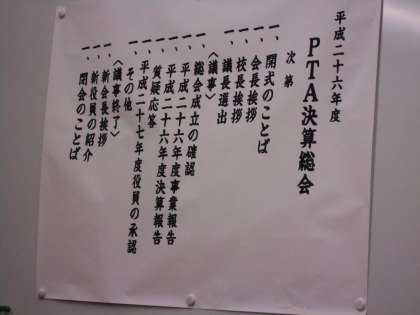 平成二十六年度
PTA決算総会
次第
一、開式のことば
一、会長挨拶
一、校長挨拶
一、議長選出
〈議事〉
一、総会成立の確認
一、平成二十六年度事業報告
一、平成二十六年度決算報告
一、質疑応答
一、平成二十七年度役員の承認
一、その他
〈議事終了〉
一、新会長挨拶
一、新役員の紹介
一、閉会のことば